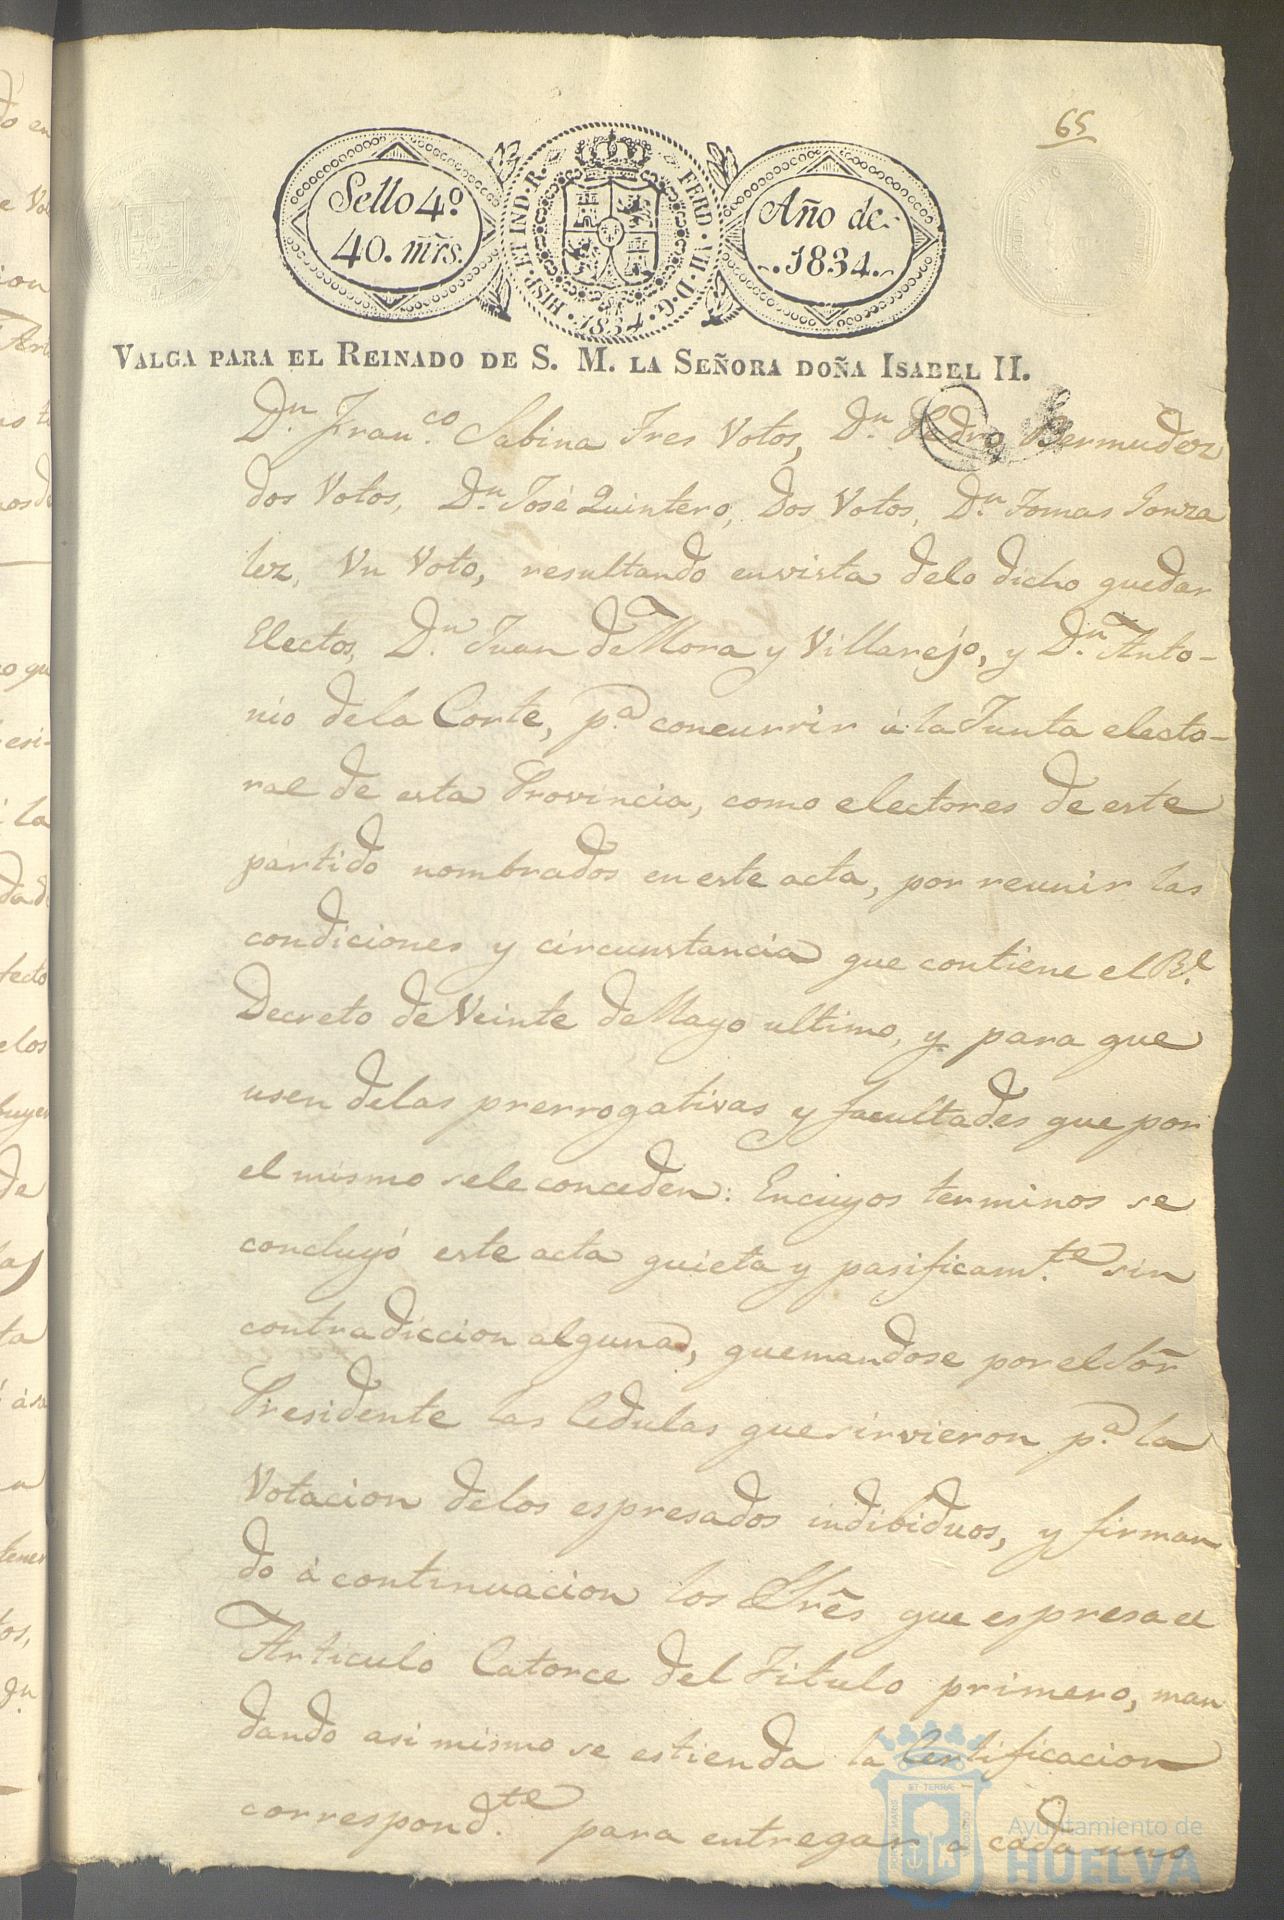 65
Sello 4º
40. mrs.
HISP. ET IND. R. FERD. VII. D. G. 1834
Año de
1834.
VALGA PARA EL REINADO DE S. M. LA SEÑORA DOÑA ISABEL II.
Dn. Franco. Sabina Tres Votos, Dn. Pedro Bermudez
dos Votos, Dn. José Quintero, Dos Votos, Dn. Tomas Gonza
lez, Un Voto, resultando envista delo dicho quedar
Electos, Dn. Juan de Mora y Villarejo, y Dn. Anto-
nio dela Corte, pa. concurrir á la Junta electo-
ral de esta Provincia, como electores de este
partido nombrados en este acta, por reunir las
condiciones y circunstancia que contiene el Rl.
Decreto de Veinte de Mayo ultimo, y para que
usen delas prerrogativas y facultades que por
el mismo sele conceden: Encuyos terminos se
concluyó este acta quieta y pasificamte. sin
contradiccion alguna, quemandose por el Sor
Presidente las Cedulas que sirvieron pa. la
Votacion delos espresados indibiduos, y firman
do á continuacion los Sres que espresa el
Articulo Catorce del Titulo primero, man
dando asi mismo se estienda la Certificacion
correspondte. para entregar a cada uno
Ayuntamiento de
HUELVA